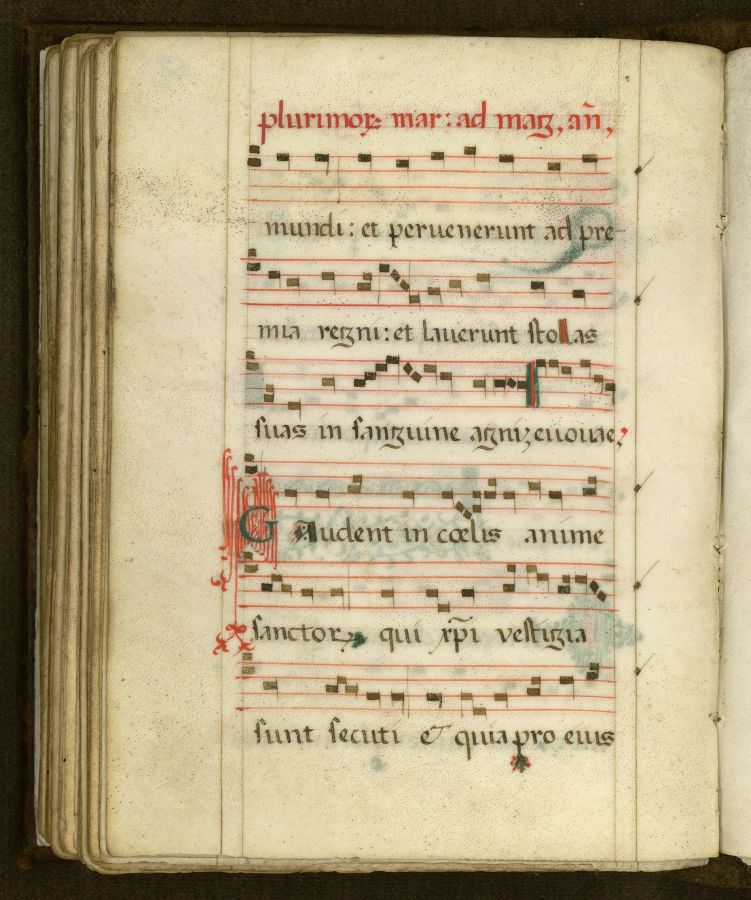 plurimoꝝ mar: ad mag, añ,
mundi: et peruenerunt ad pre
mia regni: et lauerunt stolas
suas in sanguine agni; euouae;
Gaudent in cœlis anime
sanctoꝝ, qui xp̄i vestigia
sunt secuti & quia pro eius